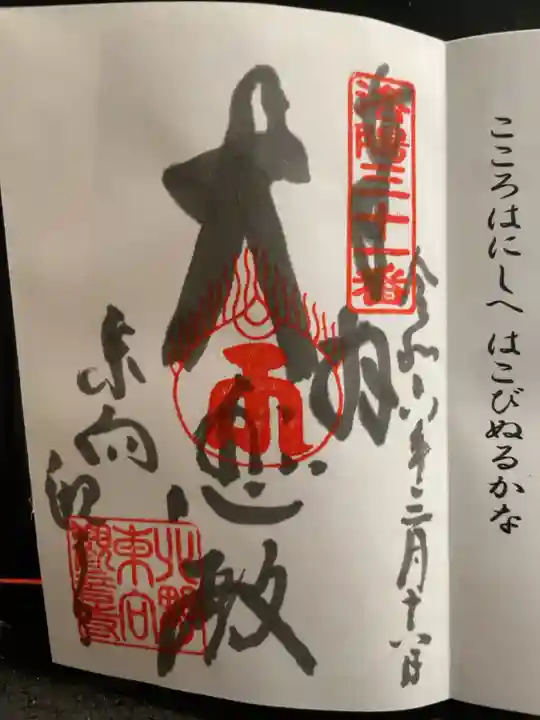 こころはにしへ はこびぬるかな
洛陽三十一番
奉拝
令和六年三月十八日
大悲殿
東向
北野
東向
観音寺